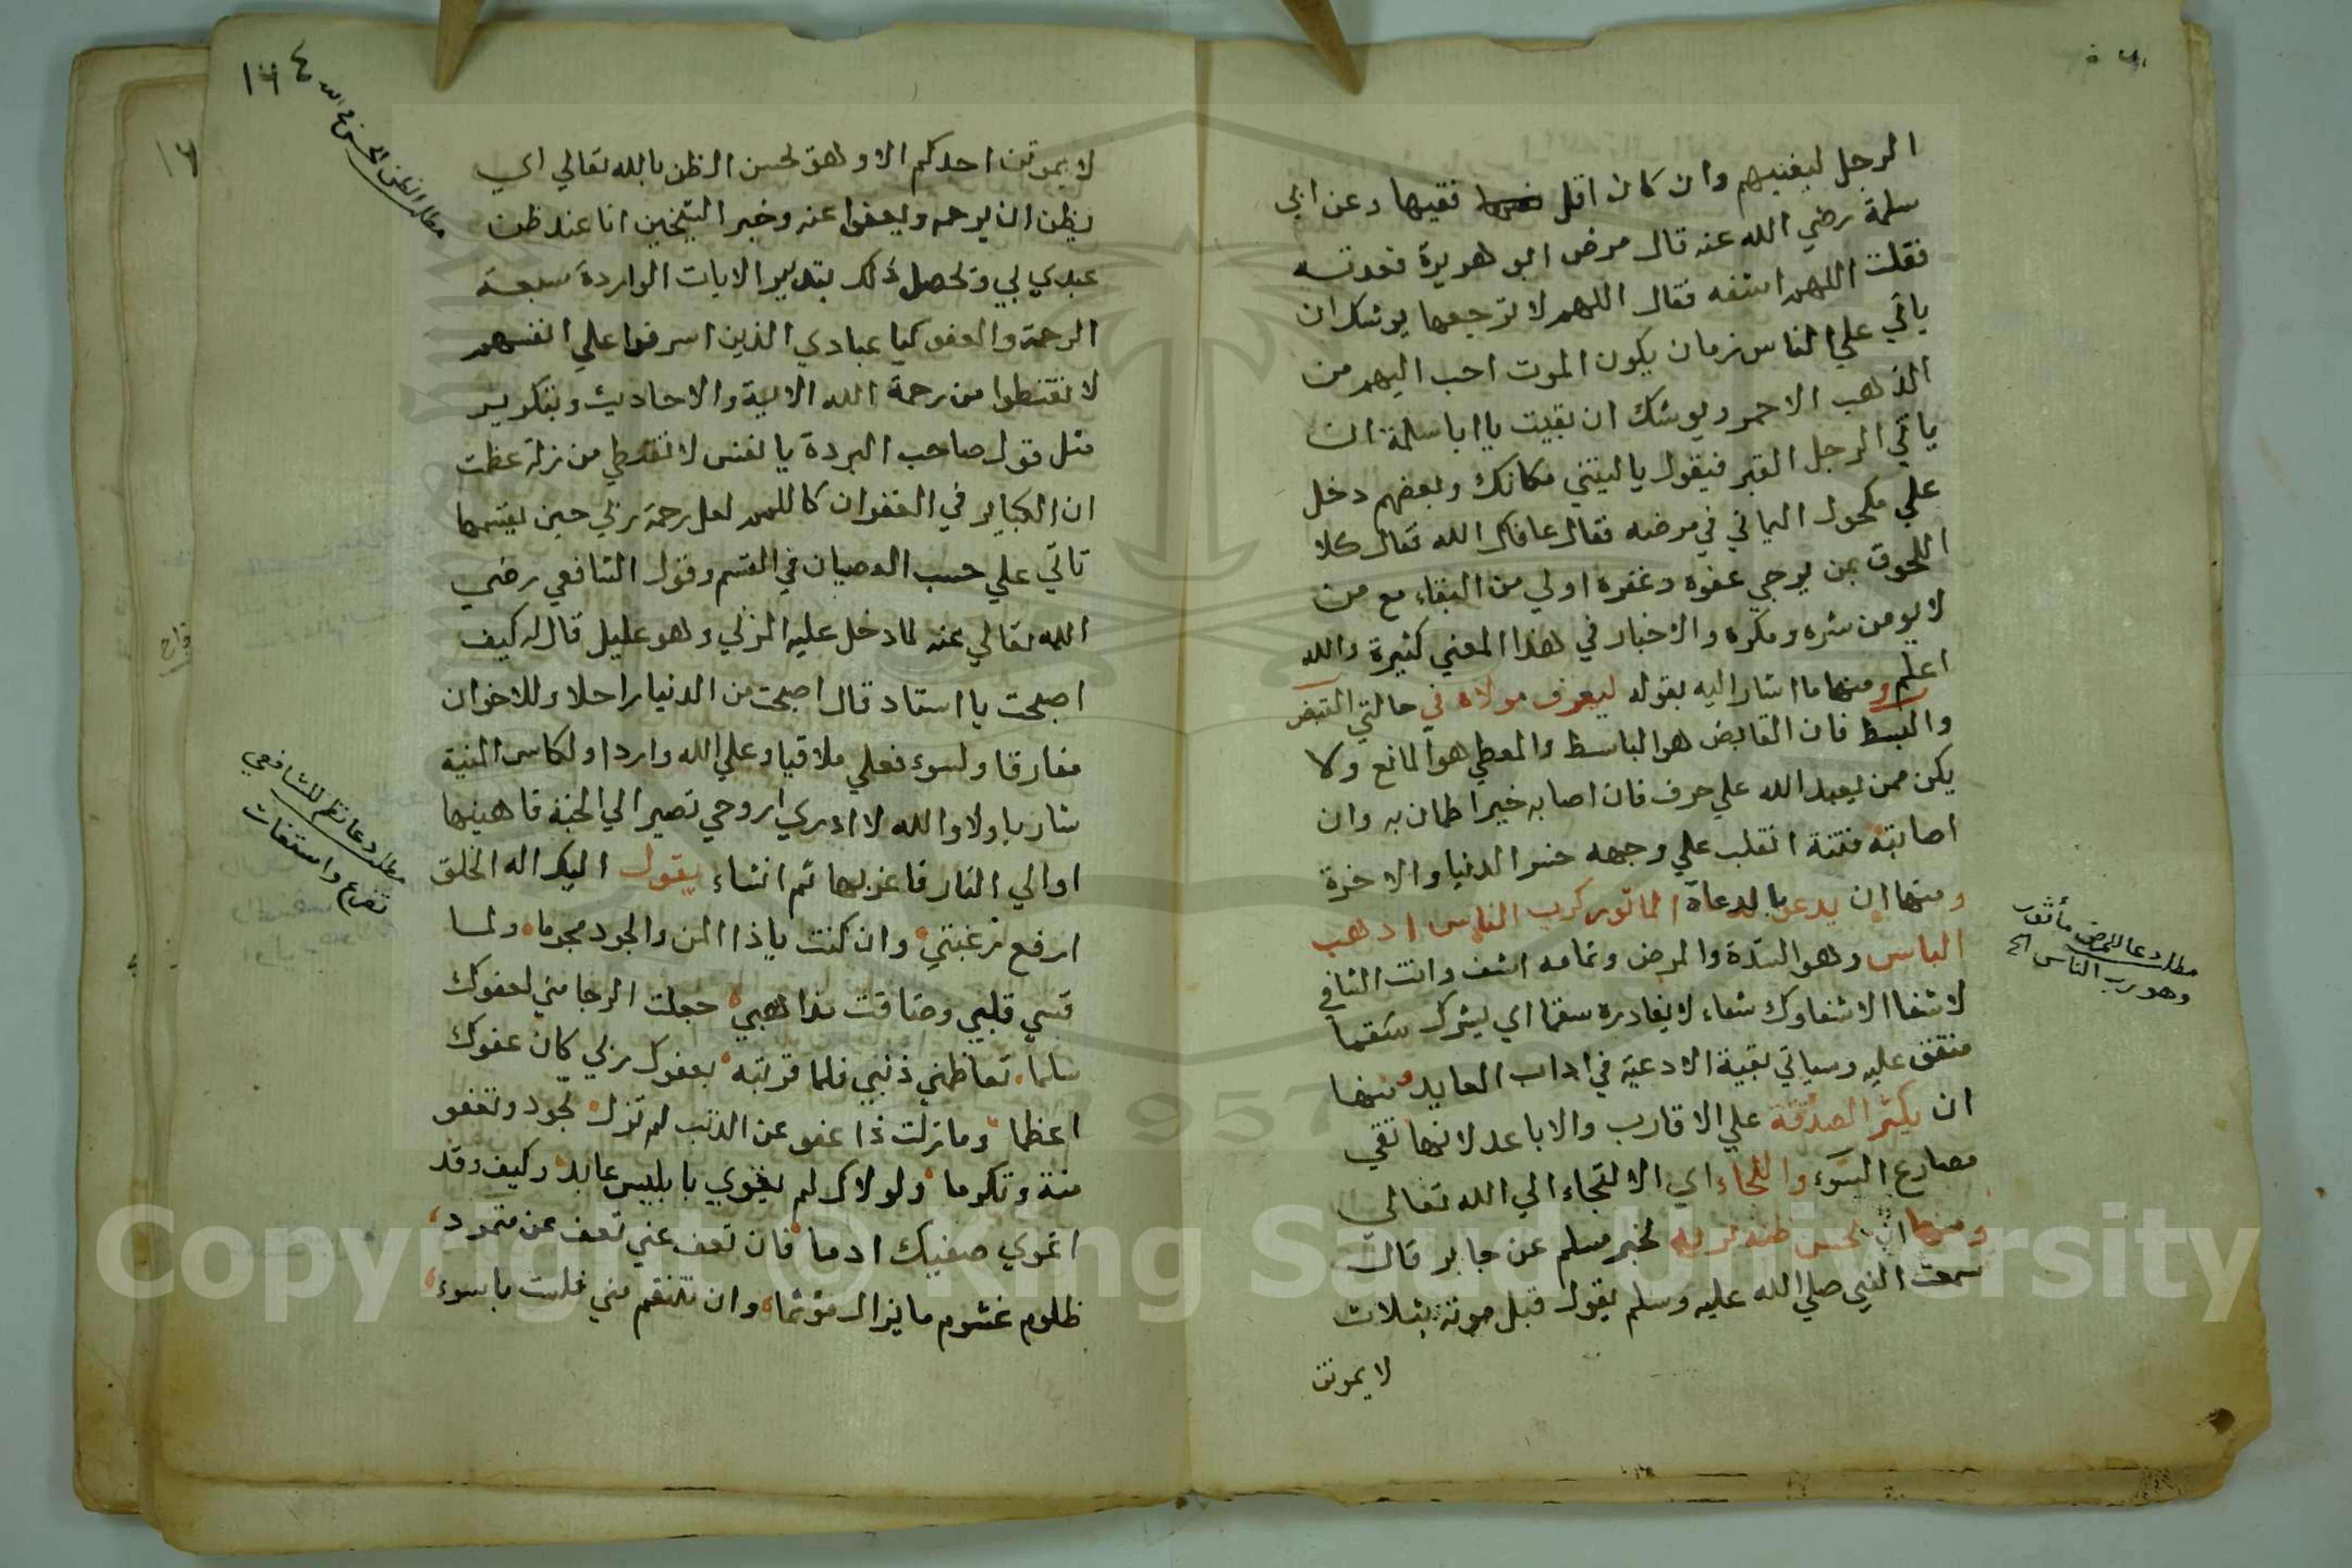 الرجل ليفنيهم وان كان اقل فقيها وعن ابي
سلمة رضي الله عنه قال مرض ابو هريرة فعدته
فقلت اللهم اشفه فقال اللهم لا ترجعها يوشك ان
ياتي علي الناس زمان يكون الموت احب اليهم من
الذهب الاحمر ويوشك ان بقيت يا ابا سلمة ان
ياتي الرجل القبر فيقول يا ليتني مكانك وبعضهم دخل
علي مكحول اليماني في مرضه فقال عافاك الله تعال كلا
اللحوق بمن يرجي عفوه وغفره اولي من البقاء مع من
لا يومن شره ومكره والاخبار في هذا المعني كثيرة والله
اعلم ومنها ما اشار اليه بقوله ليعرف مولاه في حالتي القبض
والبسط فان القابض هو الباسط والمعطي هو المانع ولا
يكن ممن يعبد الله علي حرف فان اصابه خيرا طمان به وان
اصابته فتنة انقلب علي وجهه خسر الدنيا والاخرة
ومنها ان يدعو بالدعاء الماثور كرب الناس اذهب
الباس وهو الشدة والمرض وتمامه اشف وانت الشافي
لا شفا الا شفاوك شفاء لا يغادره سقما اي يترك سقما
متفق عليه وسياتي بقية الادعية في اداب العايد ومنها
ان يكثر الصدقة علي الاقارب والاباعد لانها تقي
مصارع السوء واللجاء اي الالتجاء الي الله تعالي
ومنها ان يحسن ظنه بربه لخبر مسلم عن جابر قال
سمعت النبي صلي الله عليه وسلم يقول قبل موته بثلاث
لا يموتن
مطلب دعا للمرض مأثور
وهو رب الناس الخ
١٦٤
مطلب الظن الحسن في الله
لا يموتن احدكم الا وهو يحسن الظن بالله تعالي اي
يظن ان يرحمه ويعفوا عنه وخبر الشيخين انا عند ظن
عبدي بي ويحصل ذلك بتدبير الايات الواردة بسعة
الرحمة والعفو كيا عبادي الذين اسرفوا علي انفسهم
لا تقنطوا من رحمة الله الاية والاحاديث وبتكرير
مثل قول صاحب البردة يا نفس لا تقنطي من زلة عظمت
ان الكباير في الغفران كاللمم لعل رحمة ربي حين يقسمها
تاتي علي حسب العصيان في القسم وقول الشافعي رضي
الله تعالي عنه لما دخل عليه المزني وهو عليل قال له كيف
اصبحت يا استاد قال اصبحت من الدنيا راحلا وللاخوان
مفارقا ولسوء فعلي ملاقيا وعلي الله واردا ولكاس المنية
شاربا ولا والله لا ادري اروحي تصير الي الجنة فاهنيها
اوالي النار فاعزيها ثم انشاء يقول اليك اله الخلق
ارفع رغبتي وان كنت ياذا المن والجود مجرما ولما
قسي قلبي وضاقت مذاهبي جعلت الرجا مني لعفوك
سلما تعاظمني ذنبي فلما قرنته بعفوك ربي كان عفوك
اعظما وما زلت ذا عفو عن الذنب لم تزل تجود وتعفو
منة وتكرما ولولاك لم يغوي بابليس عابد وكيف وقد
اغوي صفيك ادما فان تعف عني تعف عن متمرد
ظلوم غشوم ما يزال مؤثما وان تنتقم مني فلست بايسو
مطلب دعا نظم للشافعي
تضرع واستغاث
Copyright © King Saud University
1957